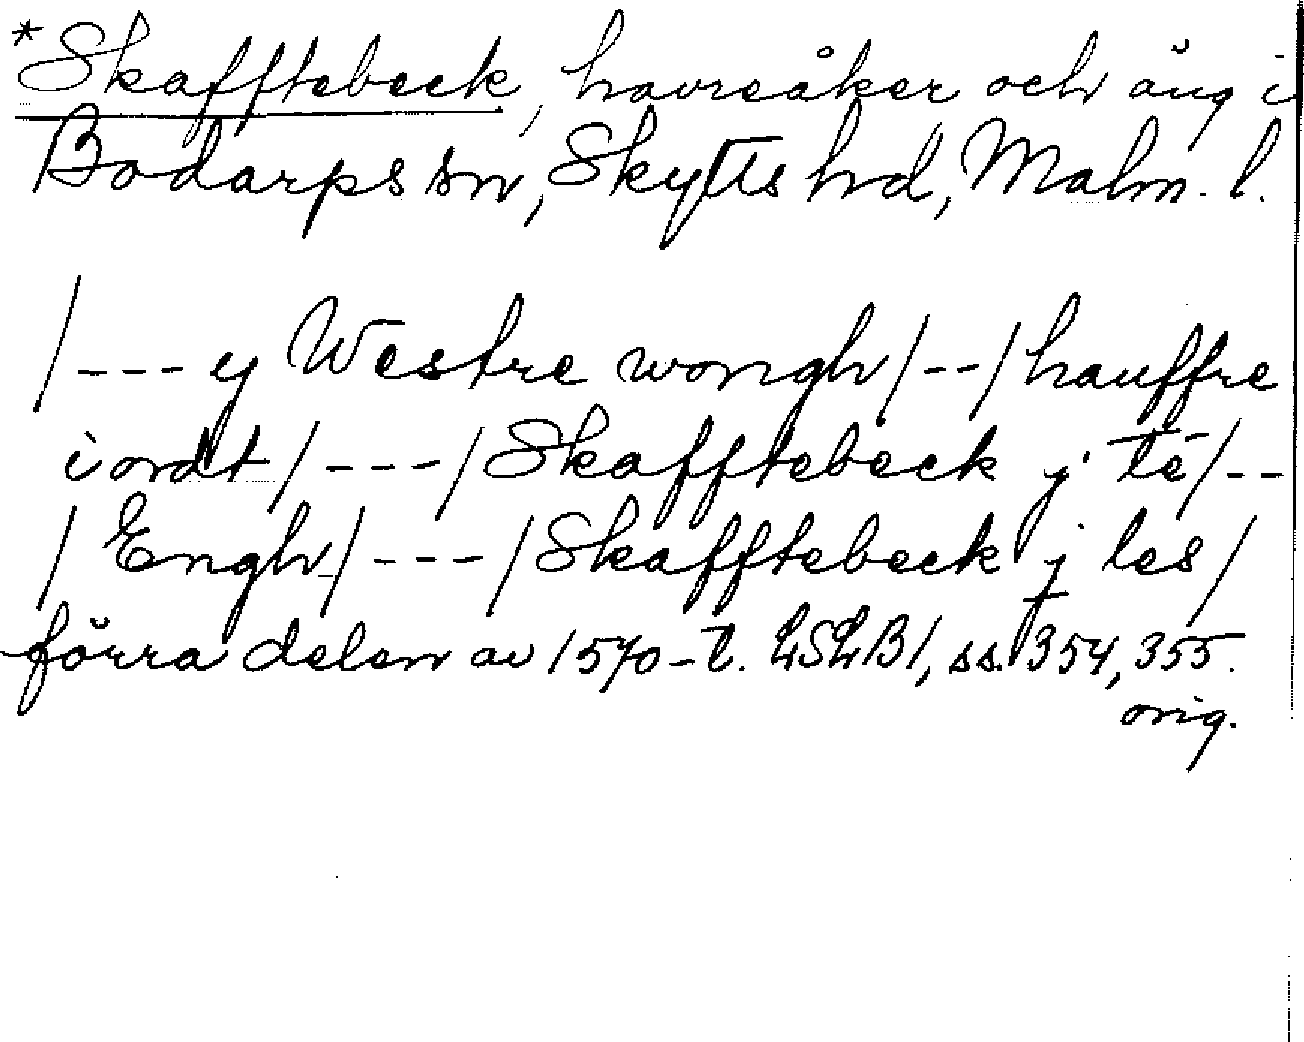 *Skafftebeck, havreåker och äng i
Bodarps sn, Skytts hd, Malm. l.
/--- y Westre wongh/--/hauffre
iordt/---/Skafftebeck j té/--
/Engh/---/Skafftebeck j les/
förra delen av 1570-t. LSLB1, ss. 354, 355.
orig.